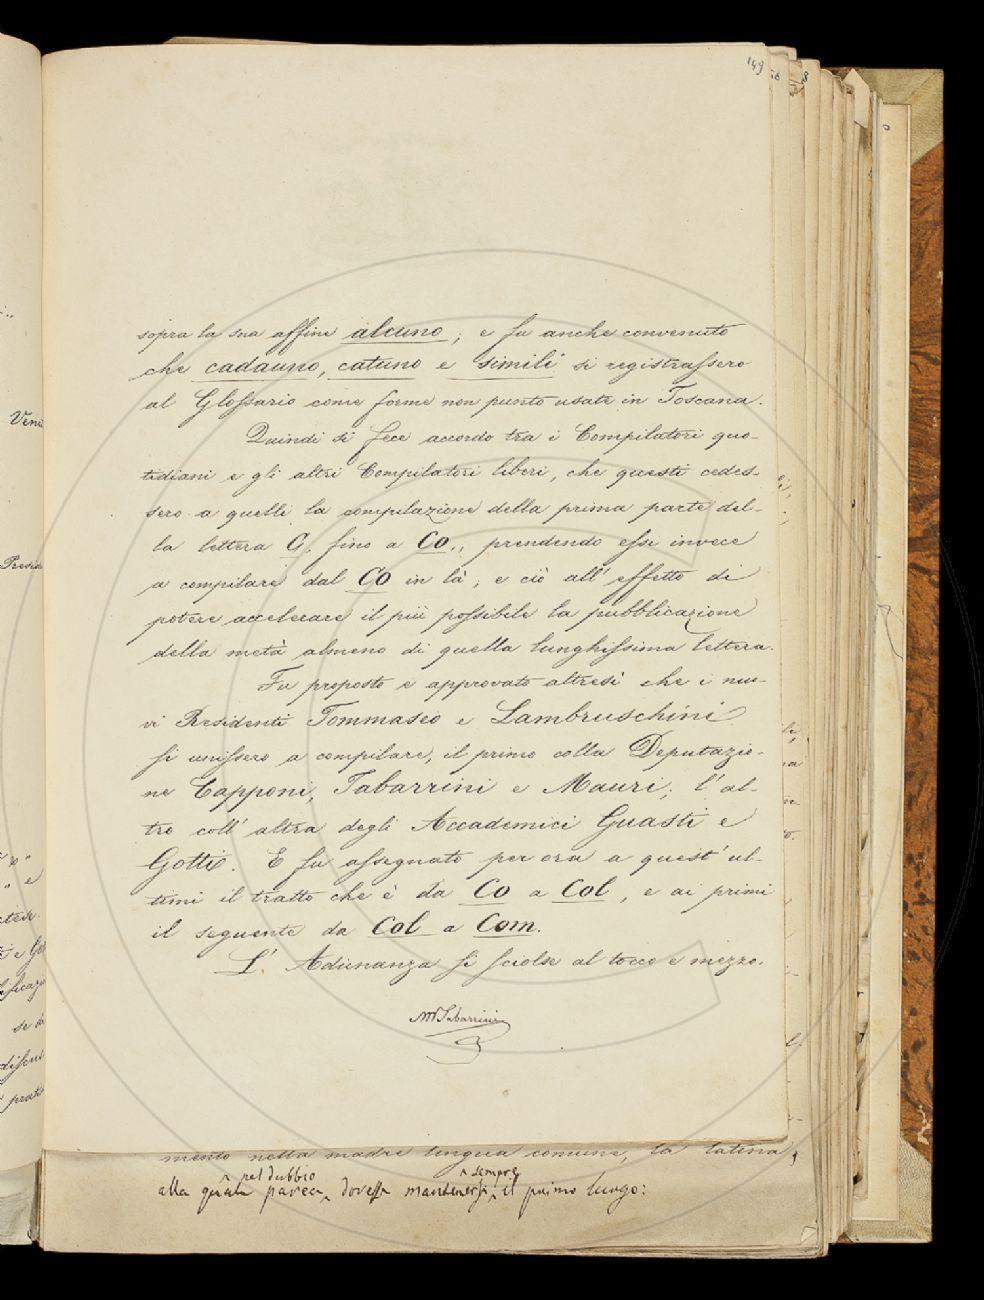 149
sopra la sua affine alcuno; e fu anche convenuto
che cadauno, catuno e simili si registrassero
al Glossario come forme non punto usate in Toscana.
Quindi si fece accordo tra i Compilatori quo-
tidiani e gli altri Compilatori liberi, che questi cedes-
sero a quelli la compilazione della prima parte del-
la lettera C, fino a Co., prendendo essi invece
a compilare dal Co in là; e ciò all'effetto di
potere accelerare il più possibile la pubblicazione
della metà almeno di quella lunghissima lettera.
Fu proposto e approvato altresì che i nuo-
vi Residenti Tommaseo e Lambruschini
si unissero a compilare, il primo colla Deputazio-
ne Capponi, Tabarrini e Mauri; l'al-
tro coll'altra degli Accademici Guasti e
Gotti. E fu assegnato per ora a quest'ul-
timi il tratto che è da Co a Col, e ai primi
il seguente da Col a Com.
L'Adunanza si sciolse al tocco e mezzo.
M Tabarrini
mento nella madre lingua comune, la latina,
nel dubbio sempre
alla quale parea, dovesse mantenersi il primo luogo: